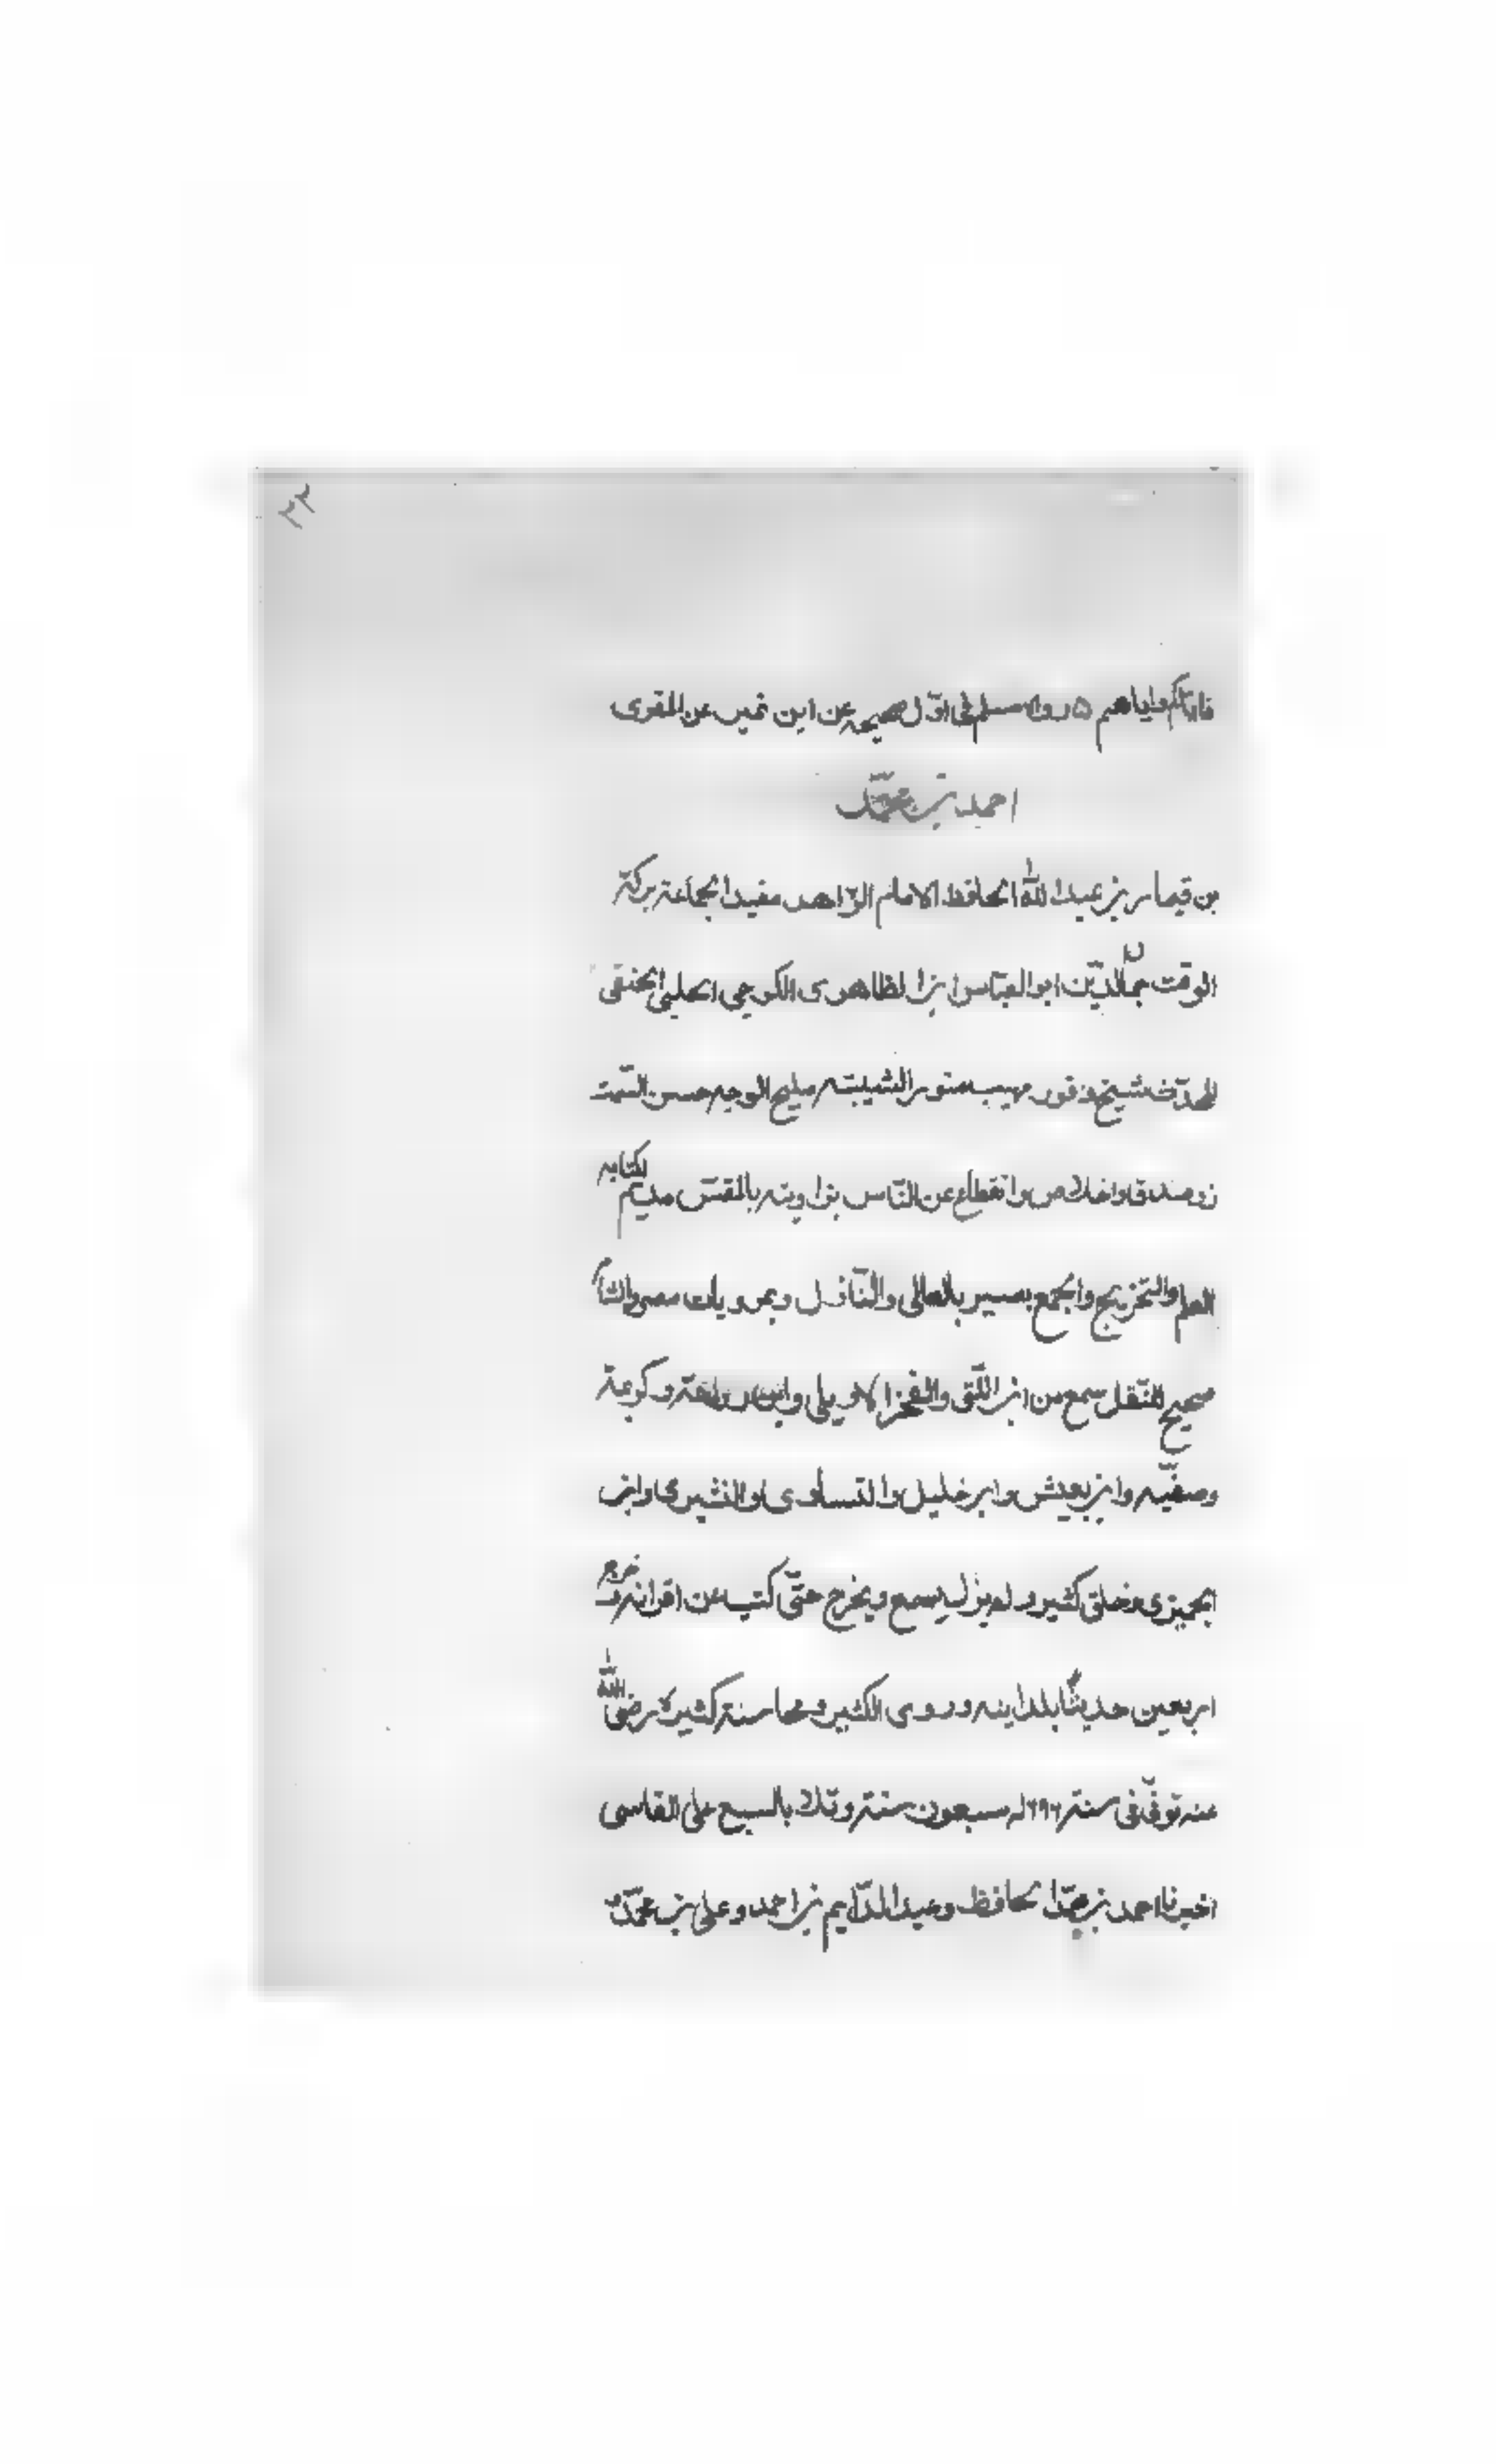 ٣٢
فاياكم واياهم ٥ رواه مسلم فى اوّل صحيحه عن ابن نمير عن المقرى
احمد بن محمّد
بن قيمار بن عبد الله الحافظ الامام الزّاهد مفيد الجماعة بركة
الوقت جمال الدّين ابو العبّاس ابن الظاهرى الكرجى الحلبى الحنفى
المحدّث شيخ وقور مهيب منور الشيبته مليح الوجه حسن السّمت
ذو صدق واخلاص وانقطاع عن النّاس بزاويته بالمقس مديم لكتابه
العلم والتخريج والجمع بصير بالعالى والنّازل وبمرويات مصر والشام
صحيح النّقل سمع من ابن اللّتى والفخر الاربلى وابن رواحة وكريمة
وصفيّه وابن يعيش وابن خليل والتساوى والنشيرى وابن
الجميزى وخلق كثير ولم يزل يسمع ويخرج حتّى كتب عن اقرانه وخرج
اربعين حديثًا بلدانيه وروى الكثير ومحاسنه كثيرة رضى الله
عنه توفّى فى سنة ٦٩٦ له سبعون سنة وتلا بالسبع على الفاسى
اخبرنا احمد بن محمّد الحافظ وعبد الدّايم بن احمد وعلى بن محمّد